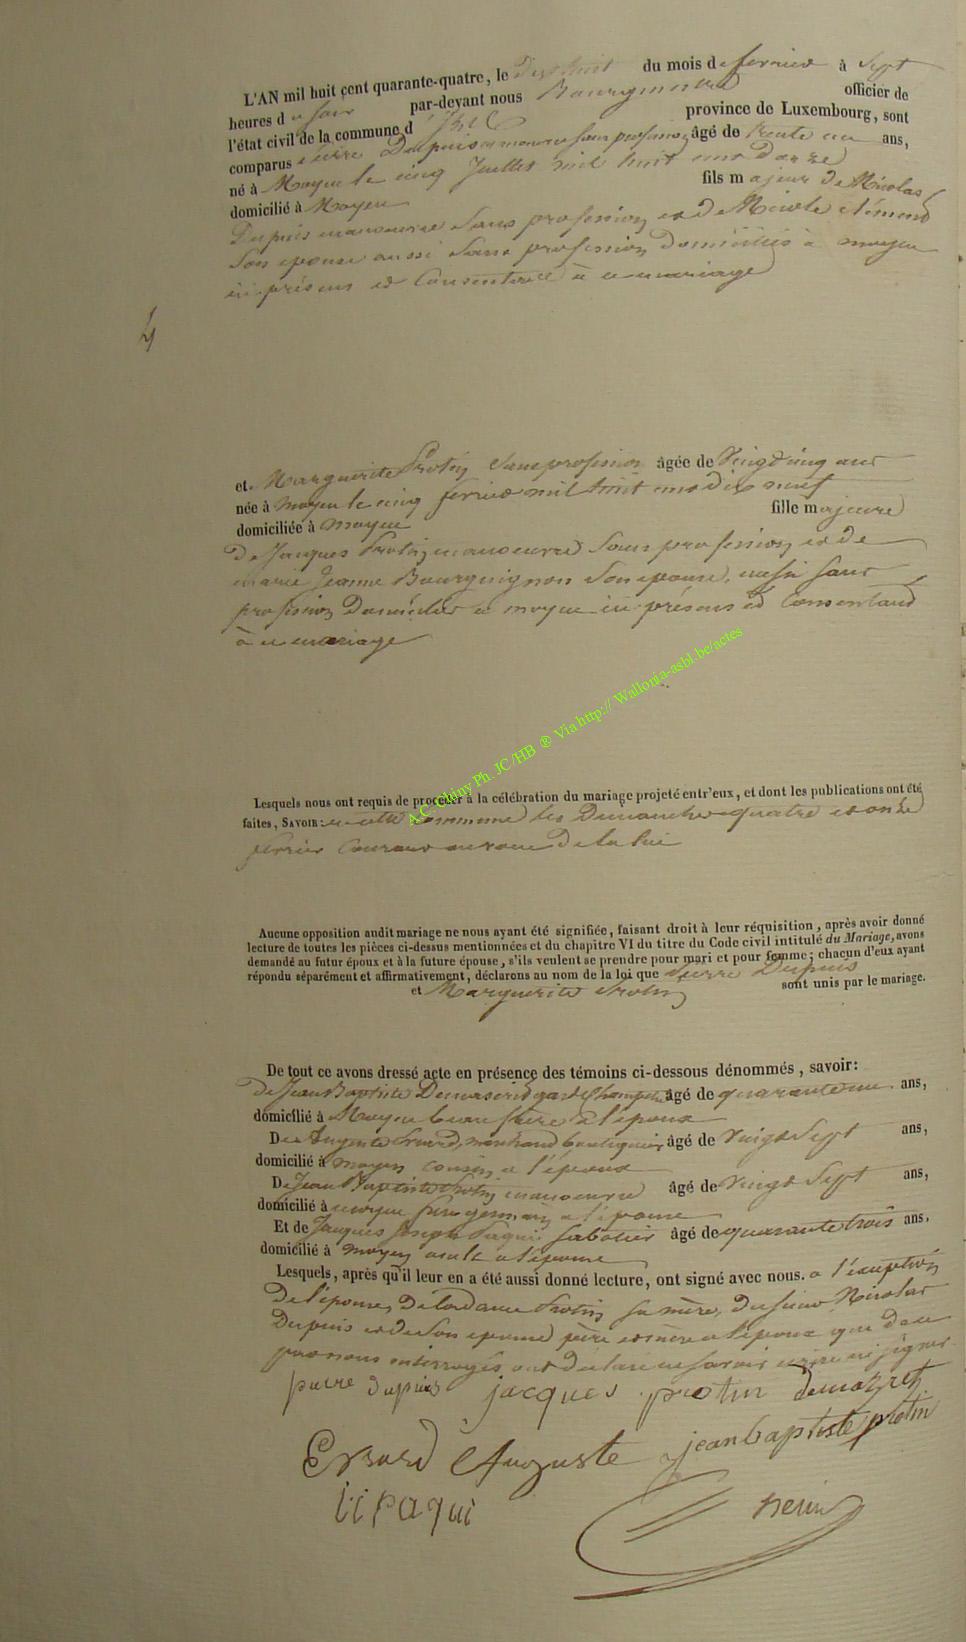 L'AN mil huit cent quarante-quatre, le dix huit du mois de fevrier à sept
heures du soir par-devant nous Bourgmestre officier de
l'état civil de la commune d province de Luxembourg, sont
comparus Pierre Dupuis manoeuvre sans profession âgé de trente un ans,
né à Moyen le cinq Juillet mil huit cent douze
domicilié à Moyen fils majeur de Nicolas
Dupuis manoeuvre sans profession et de Nicole
son epouse aussi sans profession domiciliés à moyen
ici présens et Consentans à ce mariage
4
et Marguerite Protin Sans profession âgée de Vingt cinq ans
née à moyen le cinq fevrier mil huit cent dix neuf
domiciliée à moyen fille majeure
de Jacques Protin manoeuvre Sans profession et de
marie Jeanne Bourguignon Son epouse, aussi Sans
profession Domiciliés a moyen ici présens et Consentand
à ce mariage
A.C. Chiny Ph. JC/HB ® Via http:// Wallonia-asbl.be/actes
Lesquels nous ont requis de procéder à la célébration du mariage projeté entr'eux, et dont les publications ont été
faites, SAVOIR: en cette Commune les Dimanches quatre et onze
fevrier Courant au voeu De la loi
Aucune opposition audit mariage ne nous ayant été signifiée, faisant droit à leur réquisition, après avoir donné
lecture de toutes les pièces ci-dessus mentionnées et du chapitre VI du titre du Code civil intitulé du Mariage, avons
demandé au futur époux et à la future épouse, s'ils veulent se prendre pour mari et pour femme; chacun d'eux ayant
répondu séparément et affirmativement, déclarons au nom de la loi que Pierre Dupuis
et Marguerite Protin sont unis par le mariage.
De tout ce avons dressé acte en présence des témoins ci-dessous dénommés, savoir:
De Jean Baptiste garde Champetre âgé de quarante un ans,
domicilié à Moyen beau frère à l'époux
De Auguste Errard, marchand boutiquier âgé de Vingt Sept ans,
domicilié à moyen cousin a l'époux
De Jean Baptiste Protin manoeuvre âgé de Vingt Sept ans,
domicilié à moyen frere germain a l'épouse
Et de Jacques Joseph Paqui Sabotier âgé de quarante trois ans,
domicilié à moyen oncle a l'épouse
Lesquels, après qu'il leur en a été aussi donné lecture, ont signé avec nous. a l'exception
De l'épouse, De la dame Protin Sa mère, du sieur Nicolas
Dupuis et de Son epouse père et mère a l'époux que de ce
par nous interrogés ont déclaré ne savoir écrire ni signer
pierre dupuis jacques protin demazret
Errard Auguste jean baptiste protin
jj paqui